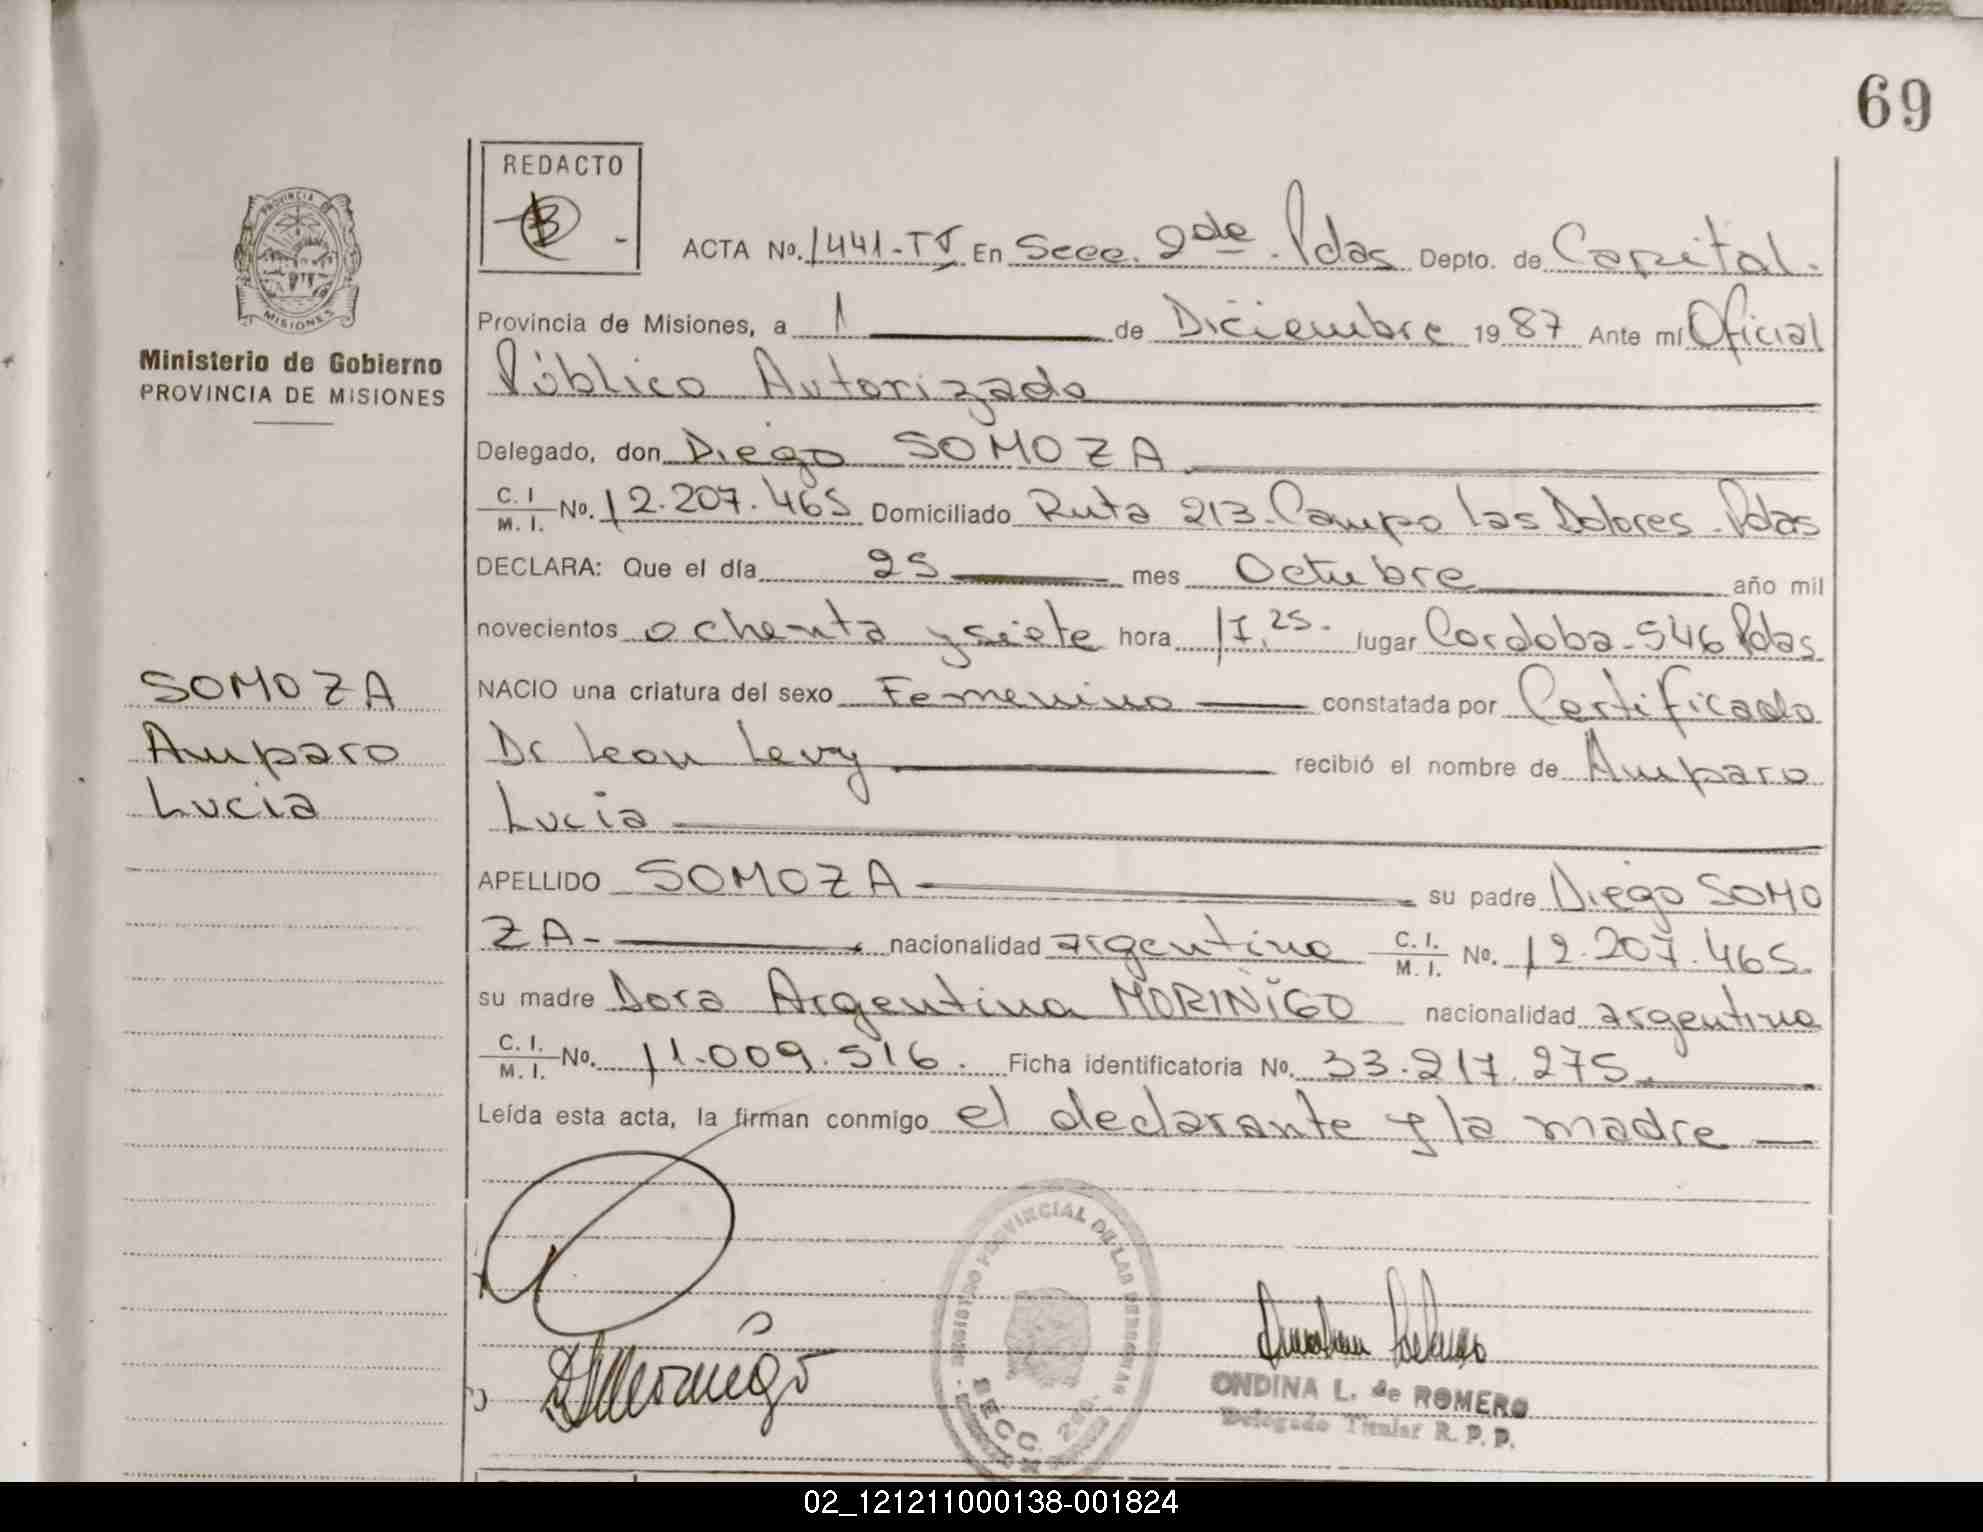 69
REDACTO
B
PROVINCIA DE
MISIONES
Ministerio de Gobierno
PROVINCIA DE MISIONES
SOMOZA
Amparo
Lucia
ACTA No. 1441-TV En Secc. 2da Pdas Depto. de Capital.
Provincia de Misiones, a 1 de Diciembre 1987 Ante mí Oficial
Público Autorizado
Delegado, don Diego SOMOZA
C. I. / M. I. No. 12.207.465 Domiciliado Ruta 213. Campo las Dolores - Pdas
DECLARA: Que el día 25 mes Octubre año mil
novecientos ochenta y siete hora 17,25. lugar Cordoba-546 Pdas
NACIO una criatura del sexo Femenino constatada por Certificado
Dr Leon Levy recibió el nombre de Amparo
Lucia
APELLIDO SOMOZA su padre Diego SOMO
ZA- nacionalidad argentino C. I. / M. I. No. 12.207.465.
su madre Dora Argentina MORIÑIGO nacionalidad argentina
C. I. / M. I. No. 11.009.516. Ficha identificatoria No. 33.217.275.
Leída esta acta, la firman conmigo el declarante y la madre
REGISTRO PROVINCIAL DE LAS PERSONAS
SECC. 2da.
ONDINA L. de ROMERO
Delegado Titular R. P. P.
02_121211000138-001824